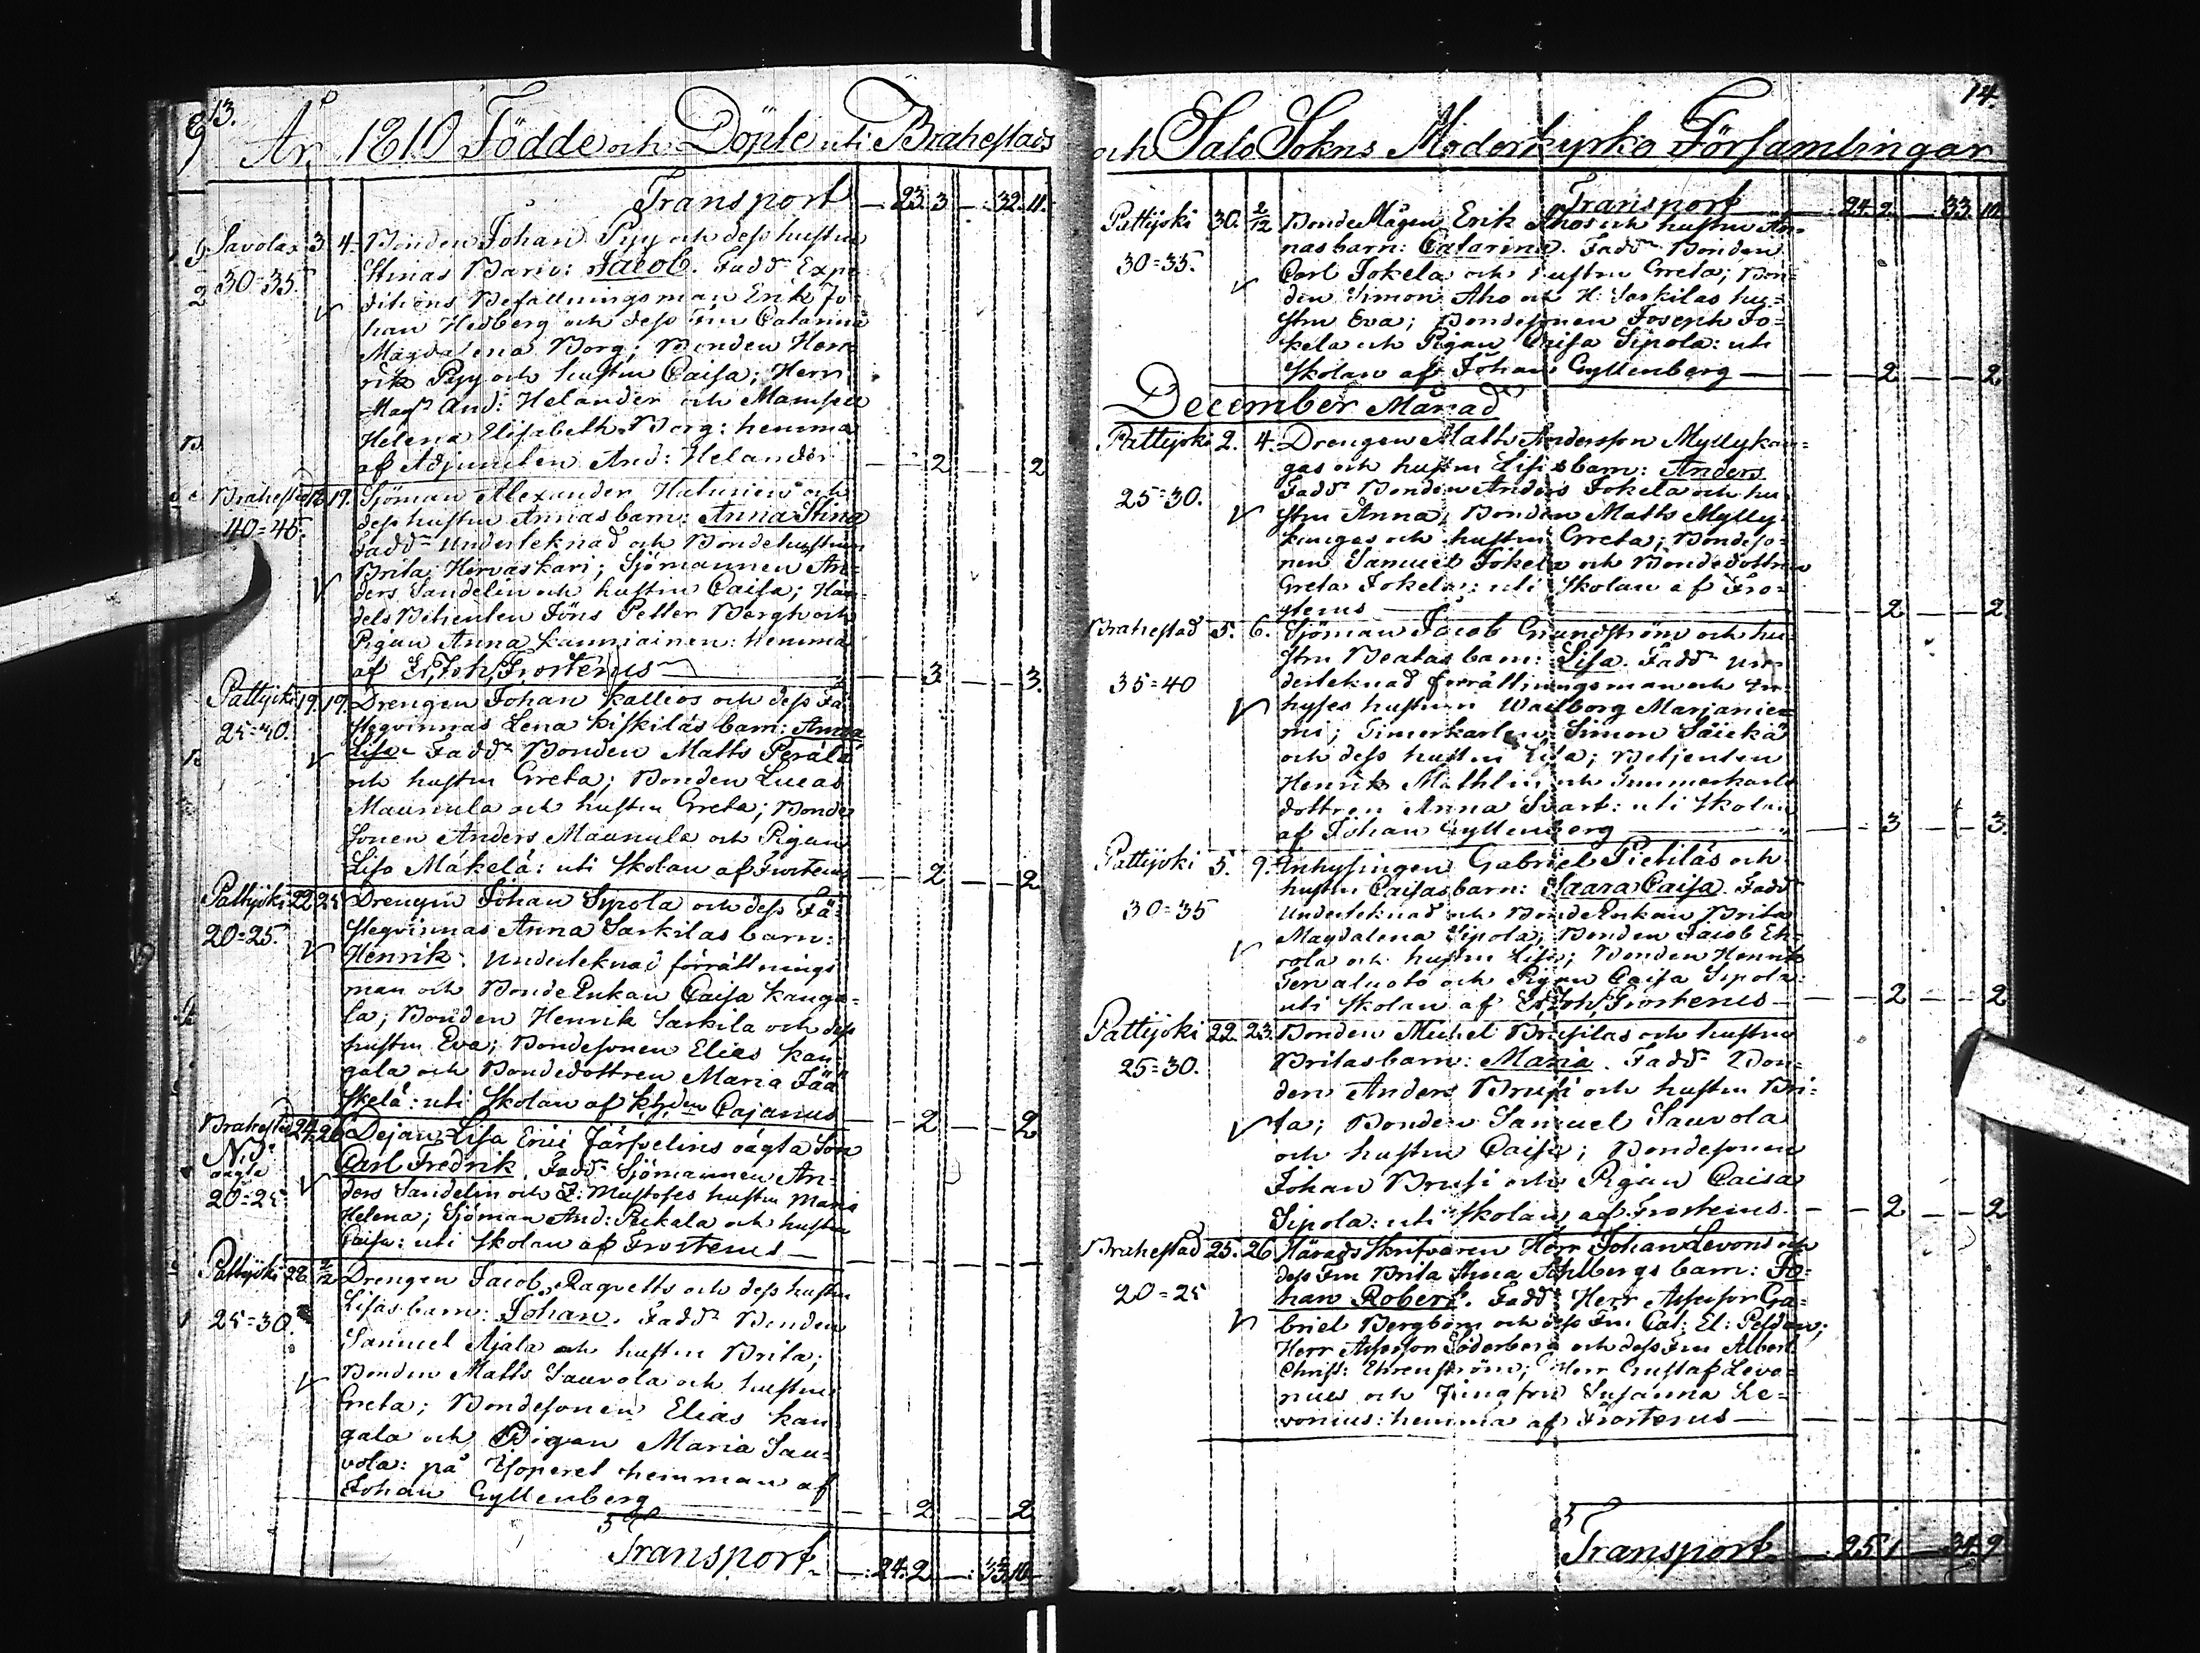 13.
År 1810 Födde och Döpte uti Brahestads
Transport — 23. 3 — 32. 11.
Savola 3 4. Bonden Johan Pyy och dess hustru
30=35. Stinas Barn: Jacob. Fadd. Expe-
ditions Befallningsman Erik Jo-
han Hedberg och dess Fru Catarina
Magdalena Borg; Bonden Hen-
rik Pyy och hustru Caisa; Herr
Mag. And: Helander och Mamsell
Helena Elisabeth Borg: hemma
af Adjuncten And: Helander — 2 — 2
Brahestad 17. Sjöman Alexander och
40=45. dess hustru Annas barn: Anna Stina
Fadd. Underteknad och Bondehustrun
Brita Hervaskari; Sjömannen An-
ders Sandelin och hustru Caisa; Han-
dels Betjenten Jöns Petter Bergh och
Pigan Anna : hemma
af Er. Joh. Frosterus — 3 — 3.
Pattijoki 19. 19. Drengen Johan Kallios och dess Fä-
25=30. steqvinnas Lena Kiskiläs barn: Anna
Lisa. Fadd. Bonden Matts Perälä
och hustru Greta; Bonden Lucas
Maunula och hustru Greta; Bonde
Sonen Anders Maunula och Pigan
Lisa Mäkelä: uti Skolan af Frosterus — 2 — 2
Pattijoki 22 25 Drengen Johan Sipola och dess Fä-
20=25. steqvinnas Anna Sarkilas barn:
Henrik. Underteknad förrättnings
man och Bonde Enkan Caisa Kanga-
la; Bonden Henrik Sarkila och dess
hustru Eva; Bondesonen Elias Kan-
gala och Bondedottren Maria Jää-
skelä: uti Skolan af Cajanus — 2 — 2
Brahestad 24. 26 Dejan Lisa Erici oägta Son
N.B. Carl Fredrik. Fadd. Sjömannen An-
oägta ders Sandelin och hustru Maria
20=25 Helena; Sjöman And: Pekkala och hustru
Caisa: uti Skolan af Frosterus —
Pattijoki 28. 2/12 Drengen Jacob Ragvetts och dess hustru
25=30. Lisas barn: Johan. Fadd. Bonden
Samuel Ajala och hustru Brita;
Bonden Matts Sauvola och hustru
Greta; Bondesonen Elias Kan-
gala och Pigan Maria Sau-
vola: på hemman af
Johan Gyllenberg — 2 — 2
Transport — 24. 2 — 33. 10
14.
och Salo Sokns Moderkyrko Församlingar
Transport — 24. 2 — 33. 10
Pattijoki 30. 2/12 Bonde Mågen Erik Ahos och hustru An-
30=35. nas barn: Catarina. Fadd. Bonden
Carl Jokela och hustru Greta; Bon-
den Simon Aho och H: Sarkilas hu-
stru Eva; Bondesonen Joseph Jo-
kela och Pigan Caisa Sipola: uti
Skolan af Johan Gyllenberg — 2 — 2
December Månad
Pattijoki 2. 4. Drengen Matts Andersson Myllykan-
gas och hustru Lisas barn: Anders
25=30. Fadd. Bonden Anders Jokela och hu-
stru Anna; Bonden Matts Mylly-
kangas och hustru Greta; Bondeso-
nen Samuel Jokela och Bondedottren
Greta Jokela: uti Skolan af Fro-
sterus — 2 — 2
Brahestad 5. 6. Sjöman Jacob Grundström och hu-
stru Beatas barn: Lisa. Fadd. Un-
35=40 derteknad förrättningsman och In-
hyses hustrun Walborg Marjanie-
mi; Timerkarlen Simon Säickä
och dess hustru Lisa; Betjenten
Henrik Mathlin och Timmerkarls
dottren Anna Svart: uti Skolan
af Johan Gyllenberg — 3 — 3.
Pattijoki 5. 9. Inhysingen Gabriel Pietiläs och
hustru Caisas barn: Saara Caisa. Fadd.
30=35 Underteknad och Bonde Enkan Brita
Magdalena Sipola; Bonden Jacob Eh-
rola och hustru Lisa; Bonden Henrik
Tervaluoto och Pigan Caisa Sipola:
uti Skolan af Er. Joh. Frosterus — 2 — 2
Pattijoki 22. 23. Bonden Michel Brusilas och hustru
25=30. Britas barn: Maria. Fadd. Bon-
den Anders Brusi och hustru Bri-
ta; Bonden Samuel Sauvola
och hustru Caisa; Bondesonen
Johan Brusi och Pigan Caisa
Sipola: uti Skolan af Frosterus. — 2 — 2
Brahestad 25. 26 Härads Skrifvaren Herr Johan Levons och
20=25 dess Fru Brita Stina Ahlbergs barn: Jo-
han Robert. Fadd. Herr Assessor Ga-
briel Bergbom och dess Fru Cat: El: Peldan;
Herr Assessor Söderberg och dess Fru Albert.
Christ: Ehrenström; Herr Gustaf Levo-
nius och Jungfru Susanna Le-
vonius: hemma af Frosterus —
Transport — 25. 1 — 34. 9.